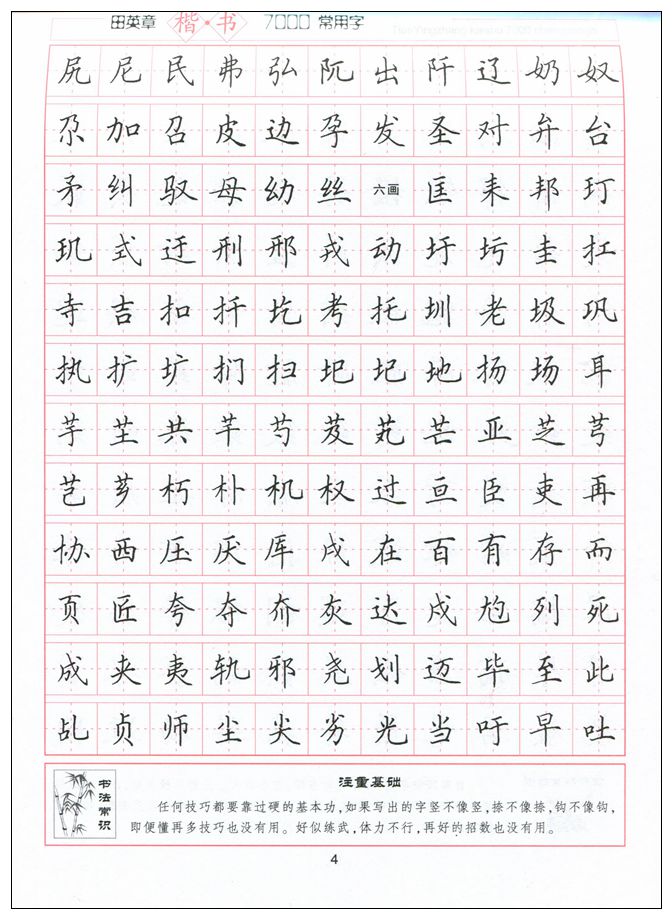 田英章 楷·书 7000 常用字
尻 尼 民 弗 弘 阢 出 阡 辽 奶 奴
尕 加 召 皮 边 孕 发 圣 对 弁 台
矛 纠 驭 母 幼 丝 六画 匡 耒 邦 玎
玑 式 迂 刑 邢 戎 动 圩 圬 圭 扛
寺 吉 扣 扦 圪 考 托 圳 老 圾 巩
执 扩 圹 扪 扫 圯 圮 地 扬 场 耳
芋 芏 共 芊 芍 芨 芄 芒 亚 芝 芎
芑 芗 朽 朴 机 权 过 亘 臣 吏 再
协 西 压 厌 厍 戌 在 百 有 存 而
页 匠 夸 夺 夼 灰 达 戍 尥 列 死
成 夹 夷 轨 邪 尧 划 迈 毕 至 此
乩 贞 师 尘 尖 劣 光 当 吁 早 吐
书法常识
注重基础
任何技巧都要靠过硬的基本功,如果写出的字竖不像竖,捺不像捺,钩不像钩,
即便懂再多技巧也没有用。好似练武,体力不行,再好的招数也没有用。
4